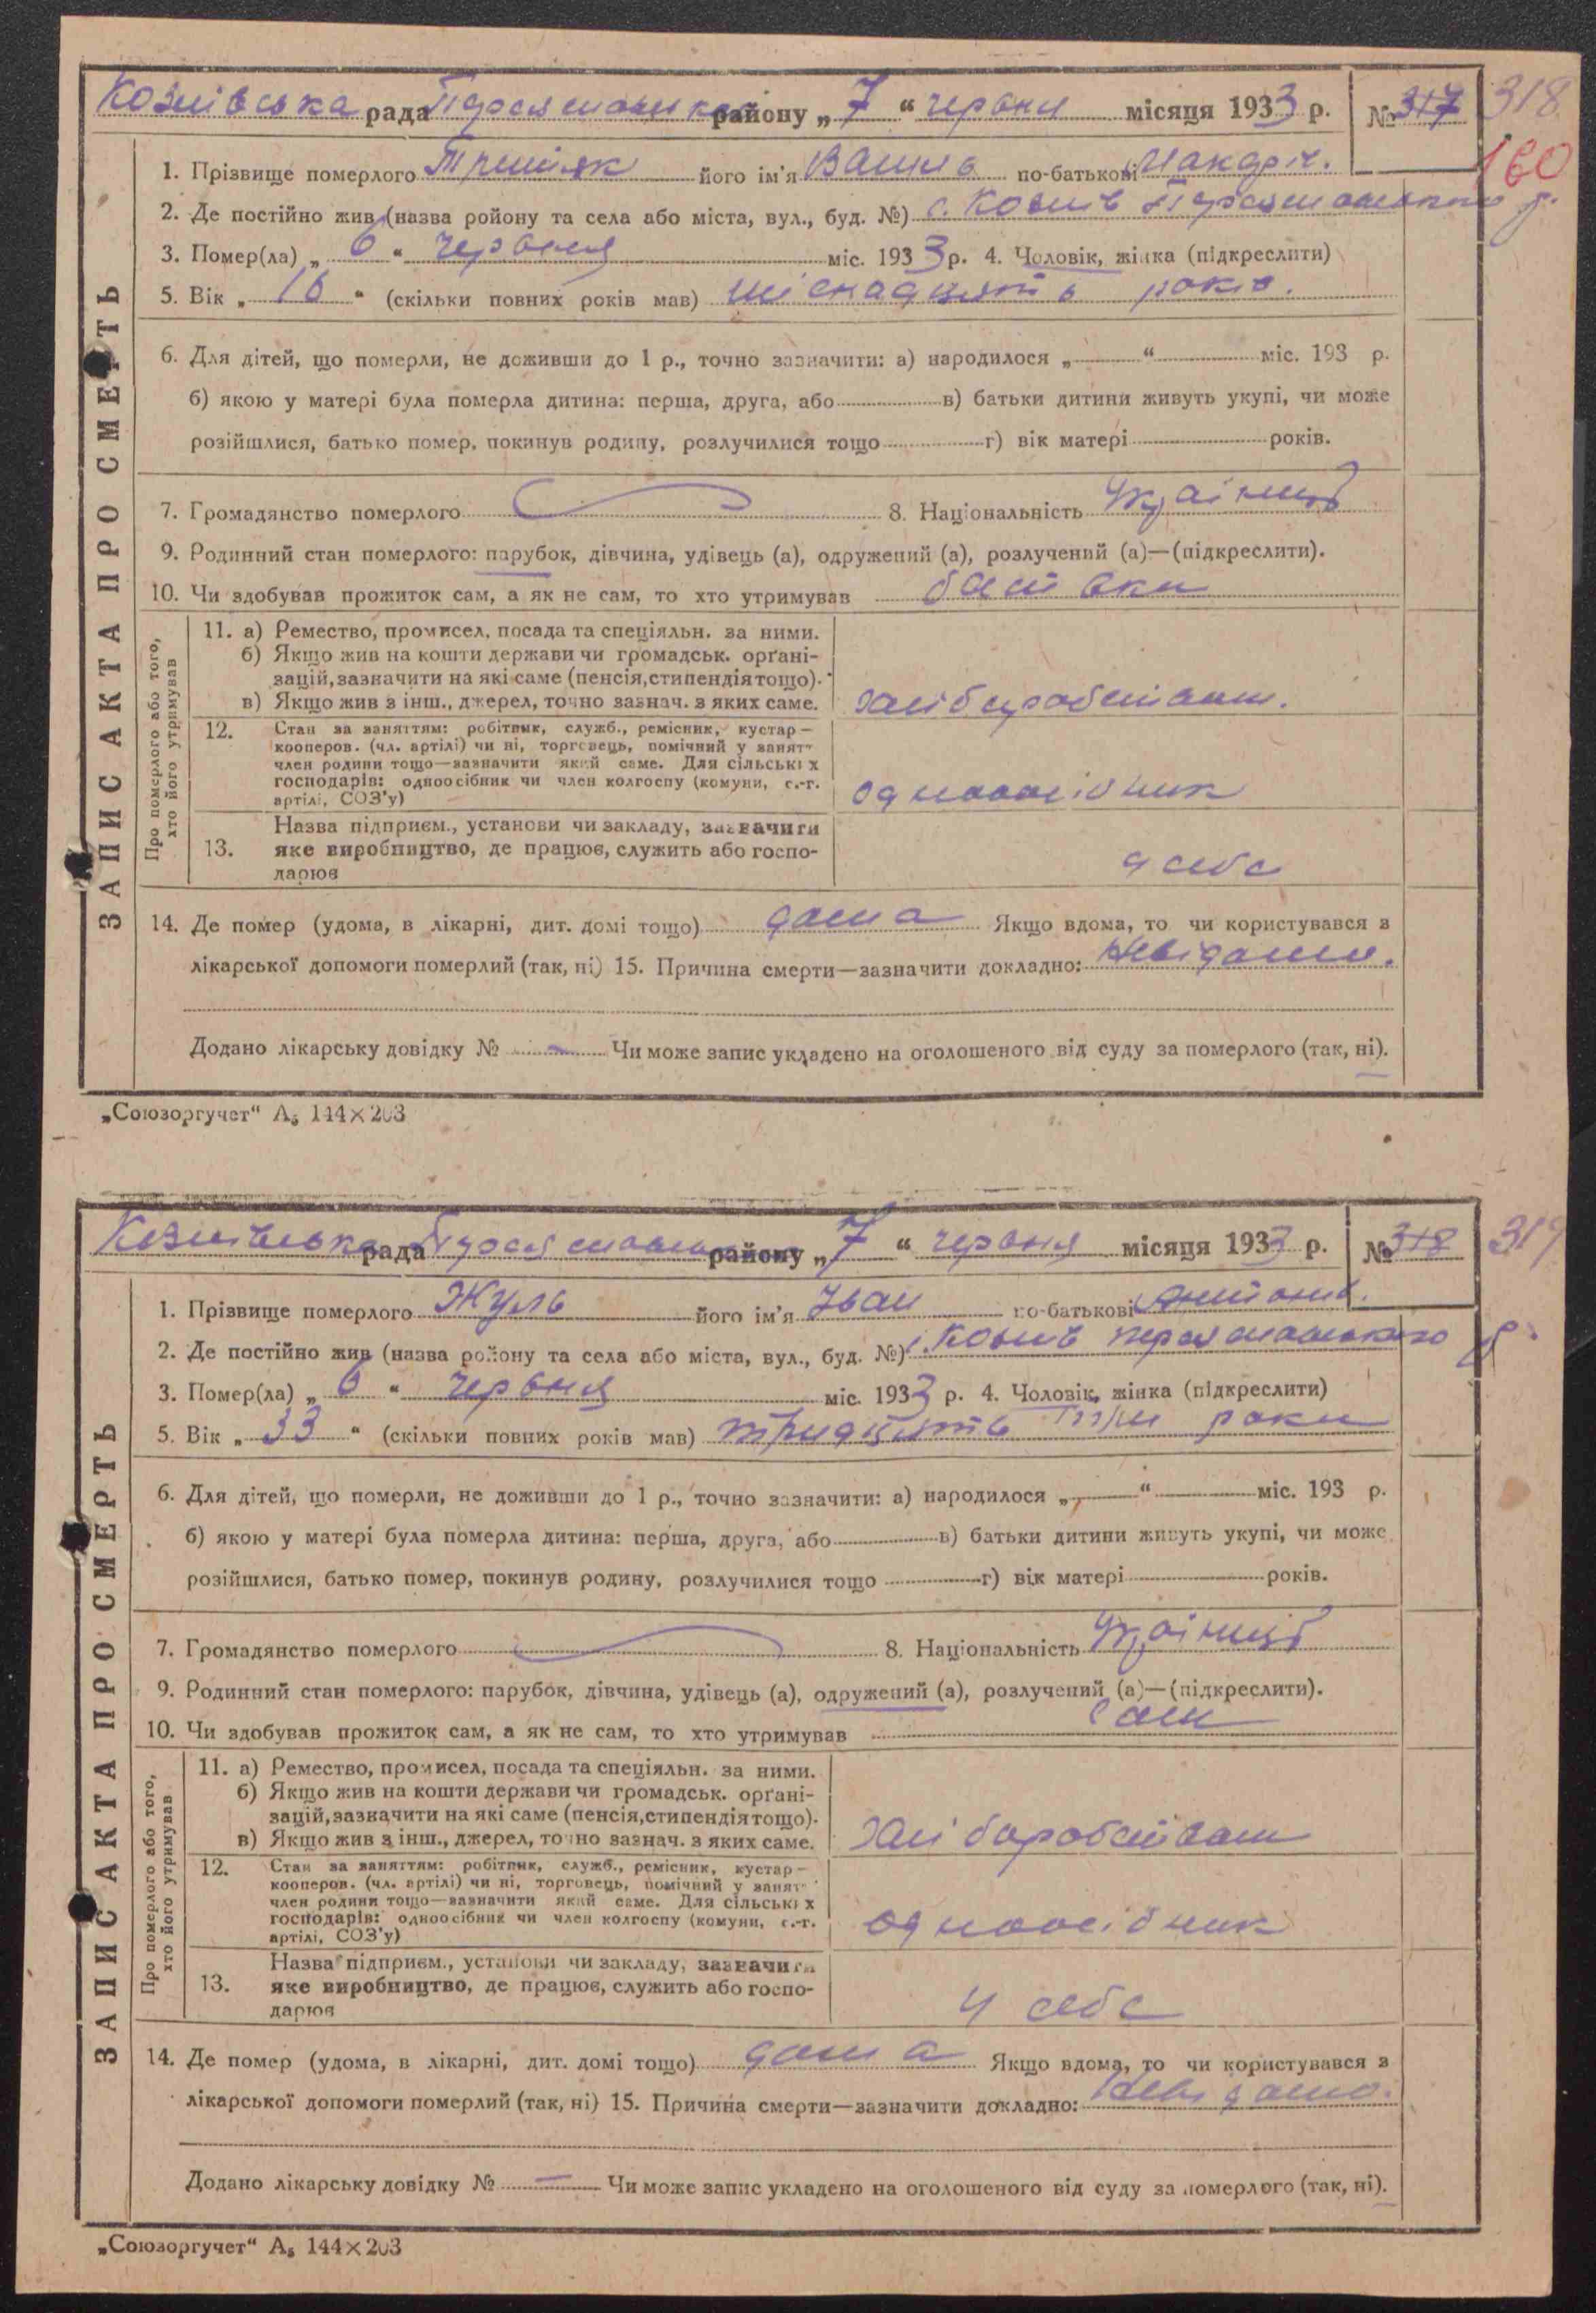 Козиівська рада Переяславськ району „7“ червня місяця 1933 р. № 317 318
160
1. Прізвище померлого Третяк його ім'я Василь по-батькові
2. Де постійно жив (назва ройону та села або міста, вул., буд. №) с. Козиів Переяславського р.
3. Помер(ла) „6“ червня міс. 1933 р. 4. Чоловік, жінка (підкреслити)
5. Вік „16“ (скільки повних років мав) шіснадцять років.
6. Для дітей, що померли, не доживши до 1 р., точно зазначити: а) народилося „ “ міс. 193 р.
б) якою у матері була померла дитина: перша, друга, або в) батьки дитини живуть укупі, чи може
розійшлися, батько помер, покинув родину, розлучилися тощо г) вік матері років.
7. Громадянство померлого 8. Національність Україниць
9. Родинний стан померлого: парубок, дівчина, удівець (а), одружений (а), розлучений (а)—(підкреслити).
10. Чи здобував прожиток сам, а як не сам, то хто утримував батьки
ЗАПИС АКТА ПРО СМЕРТЬ
Про померлого або того, хто його утримував
11. а) Ремество, промисел, посада та спеціяльн. за ними.
б) Якщо жив на кошти держави чи громадськ. орґані-
зацій, зазначити на які саме (пенсія, стипендія тощо).
в) Якщо жив з інш., джерел, точно зазнач. з яких саме. хліборобством.
12. Стан за заняттям: робітник, служб., ремісник, кустар —
кооперов. (чл. артілі) чи ні, торговець, помічний у занят-
член родини тощо—зазначити який саме. Для сільських
господарів: одноосібник чи член колгоспу (комуни, с.-г.
артілі, СОЗ'у) одноосібник
13. Назва підприєм., установи чи закладу, зазначити
яке виробництво, де працює, служить або госпо-
дарює у себе
14. Де помер (удома, в лікарні, дит. домі тощо) дома Якщо вдома, то чи користувався з
лікарської допомоги померлий (так, ні) 15. Причина смерти—зазначити докладно: Невідомо.
Додано лікарську довідку № — Чи може запис укладено на оголошеного від суду за померлого (так, ні).
„Союзоргучет“ А₅ 144×203
Козиівська рада Переяславськ району „7“ червня місяця 1933 р. № 318 319
1. Прізвище померлого Жуль його ім'я Іван по-батькові Антонов.
2. Де постійно жив (назва ройону та села або міста, вул., буд. №) с. Козиів Переяславського р.
3. Помер(ла) „6“ червня міс. 1933 р. 4. Чоловік, жінка (підкреслити)
5. Вік „33“ (скільки повних років мав) тридцять три роки
6. Для дітей, що померли, не доживши до 1 р., точно зазначити: а) народилося „ “ міс. 193 р.
б) якою у матері була померла дитина: перша, друга, або в) батьки дитини живуть укупі, чи може
розійшлися, батько помер, покинув родину, розлучилися тощо г) вік матері років.
7. Громадянство померлого 8. Національність Україниць
9. Родинний стан померлого: парубок, дівчина, удівець (а), одружений (а), розлучений (а)—(підкреслити).
10. Чи здобував прожиток сам, а як не сам, то хто утримував сам
ЗАПИС АКТА ПРО СМЕРТЬ
Про померлого або того, хто його утримував
11. а) Ремество, промисел, посада та спеціяльн. за ними.
б) Якщо жив на кошти держави чи громадськ. орґані-
зацій, зазначити на які саме (пенсія, стипендія тощо).
в) Якщо жив з інш., джерел, точно зазнач. з яких саме. хліборобством
12. Стан за заняттям: робітник, служб., ремісник, кустар —
кооперов. (чл. артілі) чи ні, торговець, помічний у занят-
член родини тощо—зазначити який саме. Для сільських
господарів: одноосібник чи член колгоспу (комуни, с.-г.
артілі, СОЗ'у) одноосібник
13. Назва підприєм., установи чи закладу, зазначити
яке виробництво, де працює, служить або госпо-
дарює у себе
14. Де помер (удома, в лікарні, дит. домі тощо) дома Якщо вдома, то чи користувався з
лікарської допомоги померлий (так, ні) 15. Причина смерти—зазначити докладно: Невідомо.
Додано лікарську довідку № — Чи може запис укладено на оголошеного від суду за померлого (так, ні).
„Союзоргучет“ А₅ 144×203